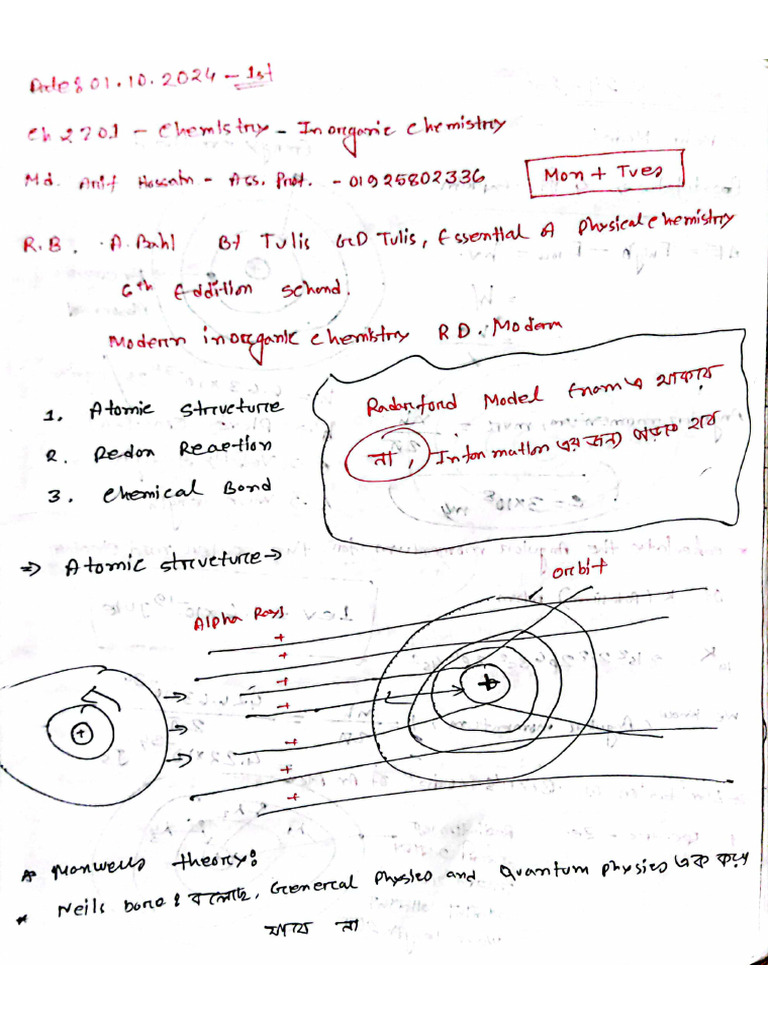 Date: 01.10.2024 - 1st
Ch 2201 - Chemistry - Inorganic Chemistry
Md. Arif Hossain - Ass. Prof. - 01925802336
Mon + Tues
R.B. A. Bahl B+ Tulis G.D Tulis, Essential A Physical chemistry
6th Eddition Schand.
Modern inorganic chemistry R D. Modern
1. Atomic structure
2. Redox Reaction
3. Chemical Bond
Model from এ থাকবে
না, Information এর জন্য পড়তে হবে
=> Atomic structure →
orbit
Alpha Rays
+
+
+
+
+
+
+
+
+
theory:
* Neils bore: বলেছে, General Physics and Quantum physics এক করা
যাবে না